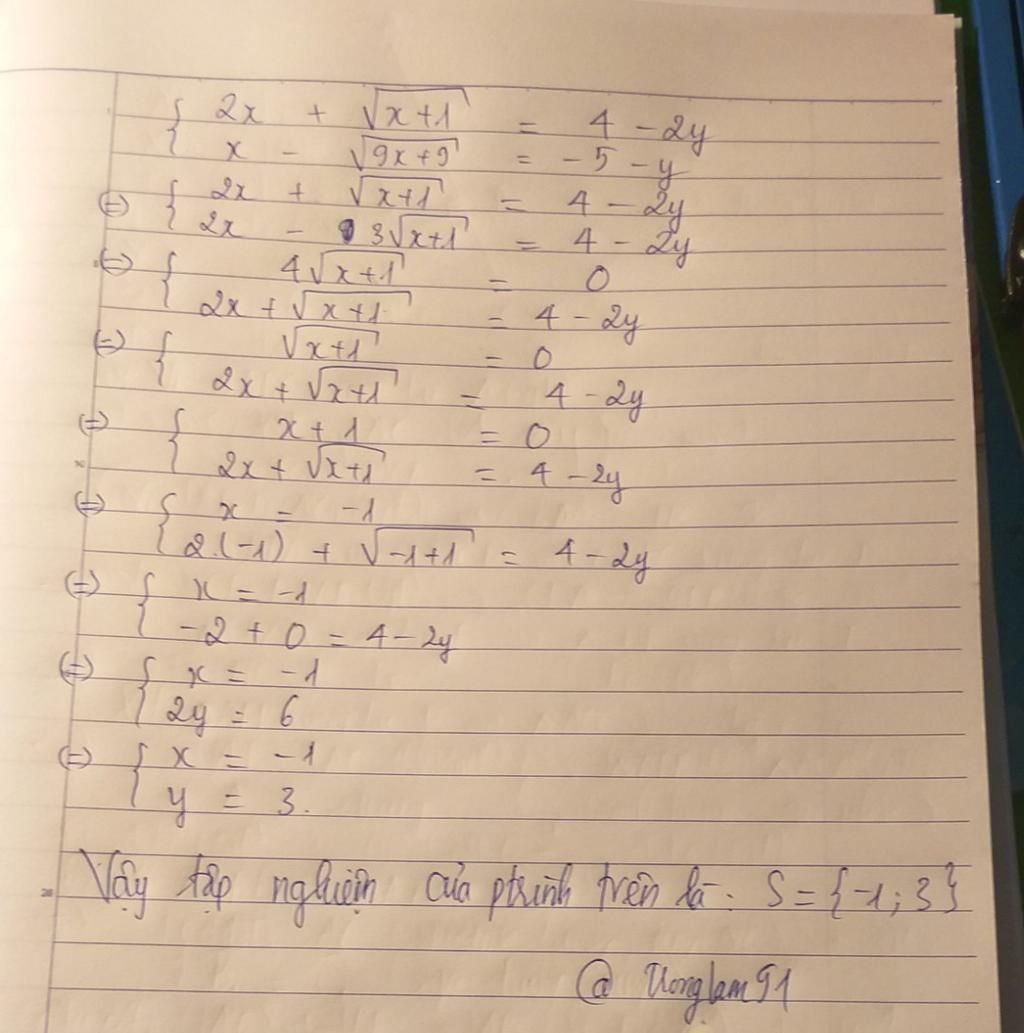 { 2x + √(x+1) = 4 - 2y
x - √(9x+9) = -5 - y
(=) { 2x + √(x+1) = 4 - 2y
2x - 3√(x+1) = 4 - 2y
(=) { 4√(x+1) = 0
2x + √(x+1) = 4 - 2y
(=) { √(x+1) = 0
2x + √(x+1) = 4 - 2y
(=) { x + 1 = 0
2x + √(x+1) = 4 - 2y
(=) { x = -1
2.(-1) + √(-1+1) = 4 - 2y
(=) { x = -1
-2 + 0 = 4 - 2y
(=) { x = -1
2y = 6
(=) { x = -1
y = 3.
Vậy tập nghiệm của ptrình trên là: S = {-1; 3}